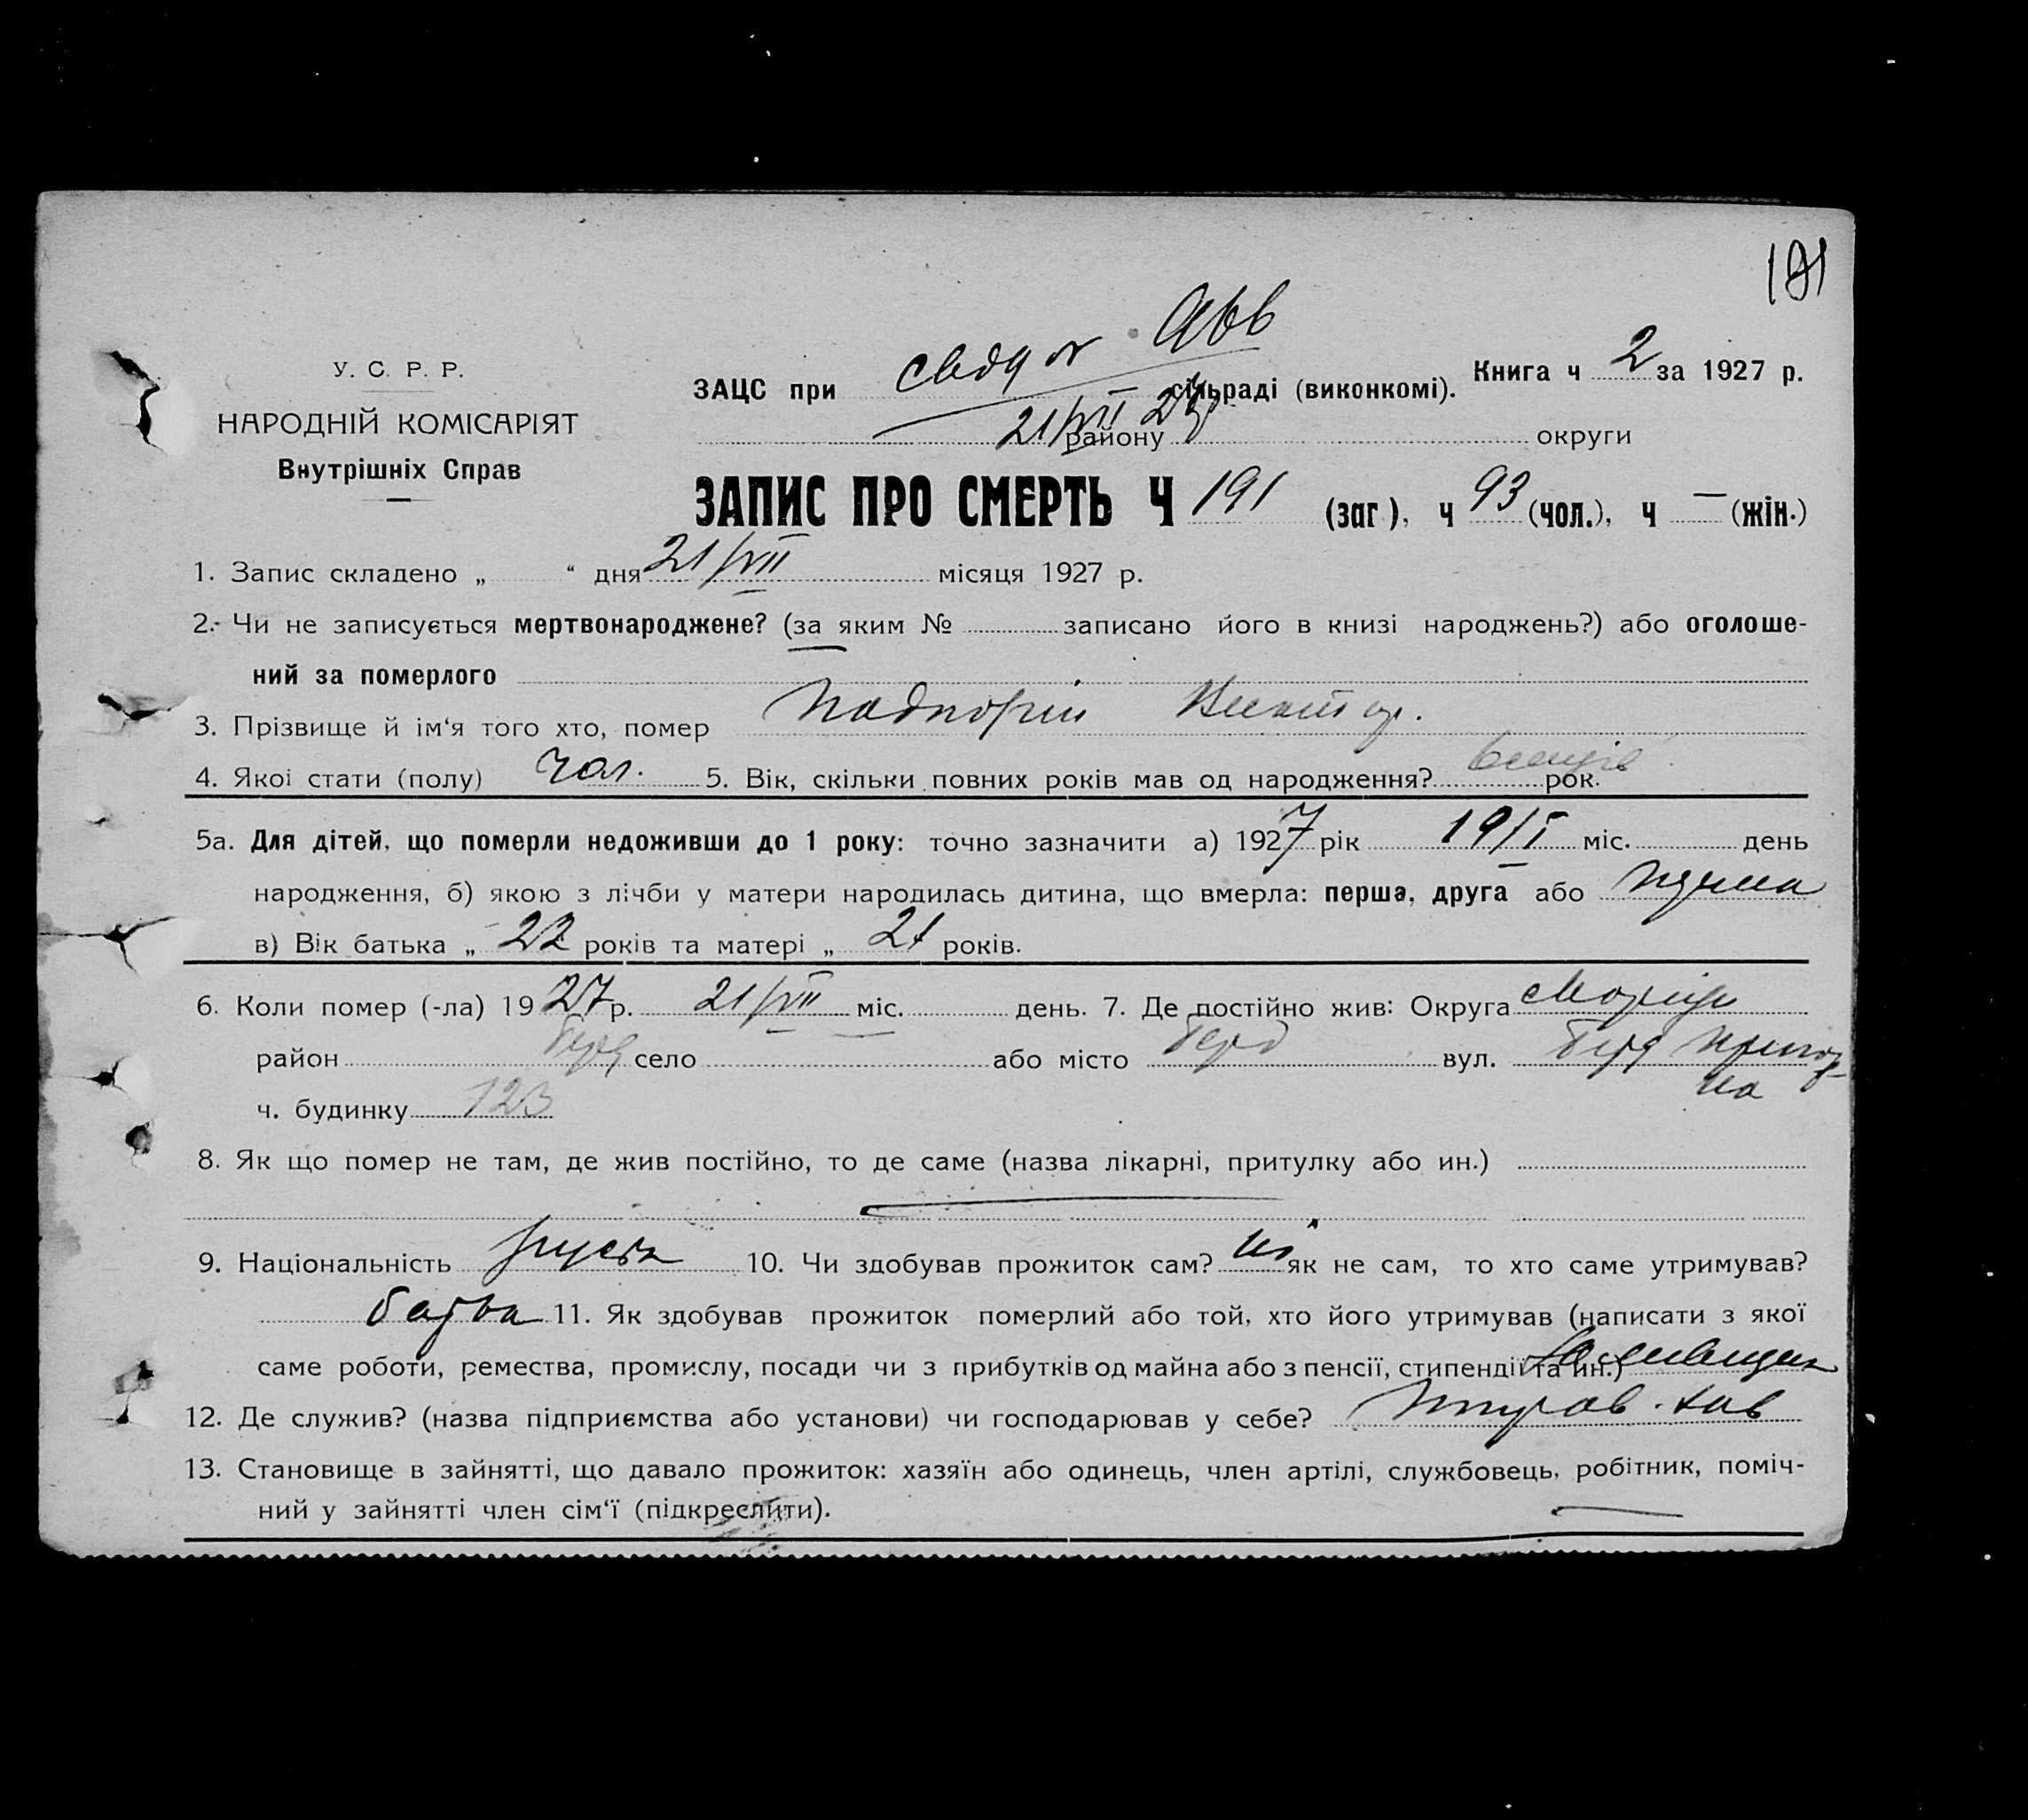 191
У. С. Р. Р.
НАРОДНІЙ КОМІСАРІЯТ
Внутрішніх Справ
ЗАЦС при сільраді (виконкомі). Книга ч 2 за 1927 р.
21/VII 27 району округи
ЗАПИС ПРО СМЕРТЬ Ч 191 (заг), ч 93 (чол.), ч — (жін.)
1. Запис складено „ “ дня 21/VII місяця 1927 р.
2. Чи не записується мертвонароджене? (за яким № записано його в книзі народжень?) або оголоше-
ний за померлого
3. Прізвище й ім‘я того хто, помер
4. Якоі стати (полу) чол. 5. Вік, скільки повних років мав од народження? рок.
5а. Для дітей, що померли недоживши до 1 року: точно зазначити а) 1927 рік 19/I міс. день
народження, б) якою з лічби у матери народилась дитина, що вмерла: перша, друга або
в) Вік батька „ 22 років та матері „ 21 років.
6. Коли помер (-ла) 1927 р. 21/VII міс. день. 7. Де постійно жив: Округа
район село або місто вул.
ч. будинку 123
8. Як що помер не там, де жив постійно, то де саме (назва лікарні, притулку або ин.)
9. Національність 10. Чи здобував прожиток сам? ні як не сам, то хто саме утримував?
11. Як здобував прожиток померлий або той, хто його утримував (написати з якої
саме роботи, ремества, промислу, посади чи з прибутків од майна або з пенсії, стипендії та ин.)
12. Де служив? (назва підприємства або установи) чи господарював у себе?
13. Становище в зайнятті, що давало прожиток: хазяїн або одинець, член артілі, службовець, робітник, поміч-
ний у зайнятті член сім‘ї (підкреслити).